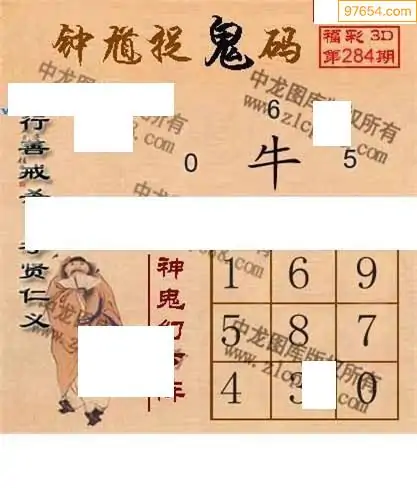 97654.com
钟馗捉鬼码
福彩 3D
第284期
6
0 牛 5
行善戒杀
贤仁义
神鬼幻
1 6 9
5 8 7
4 3 0
中龙图库版权所有
中龙图库版权所有